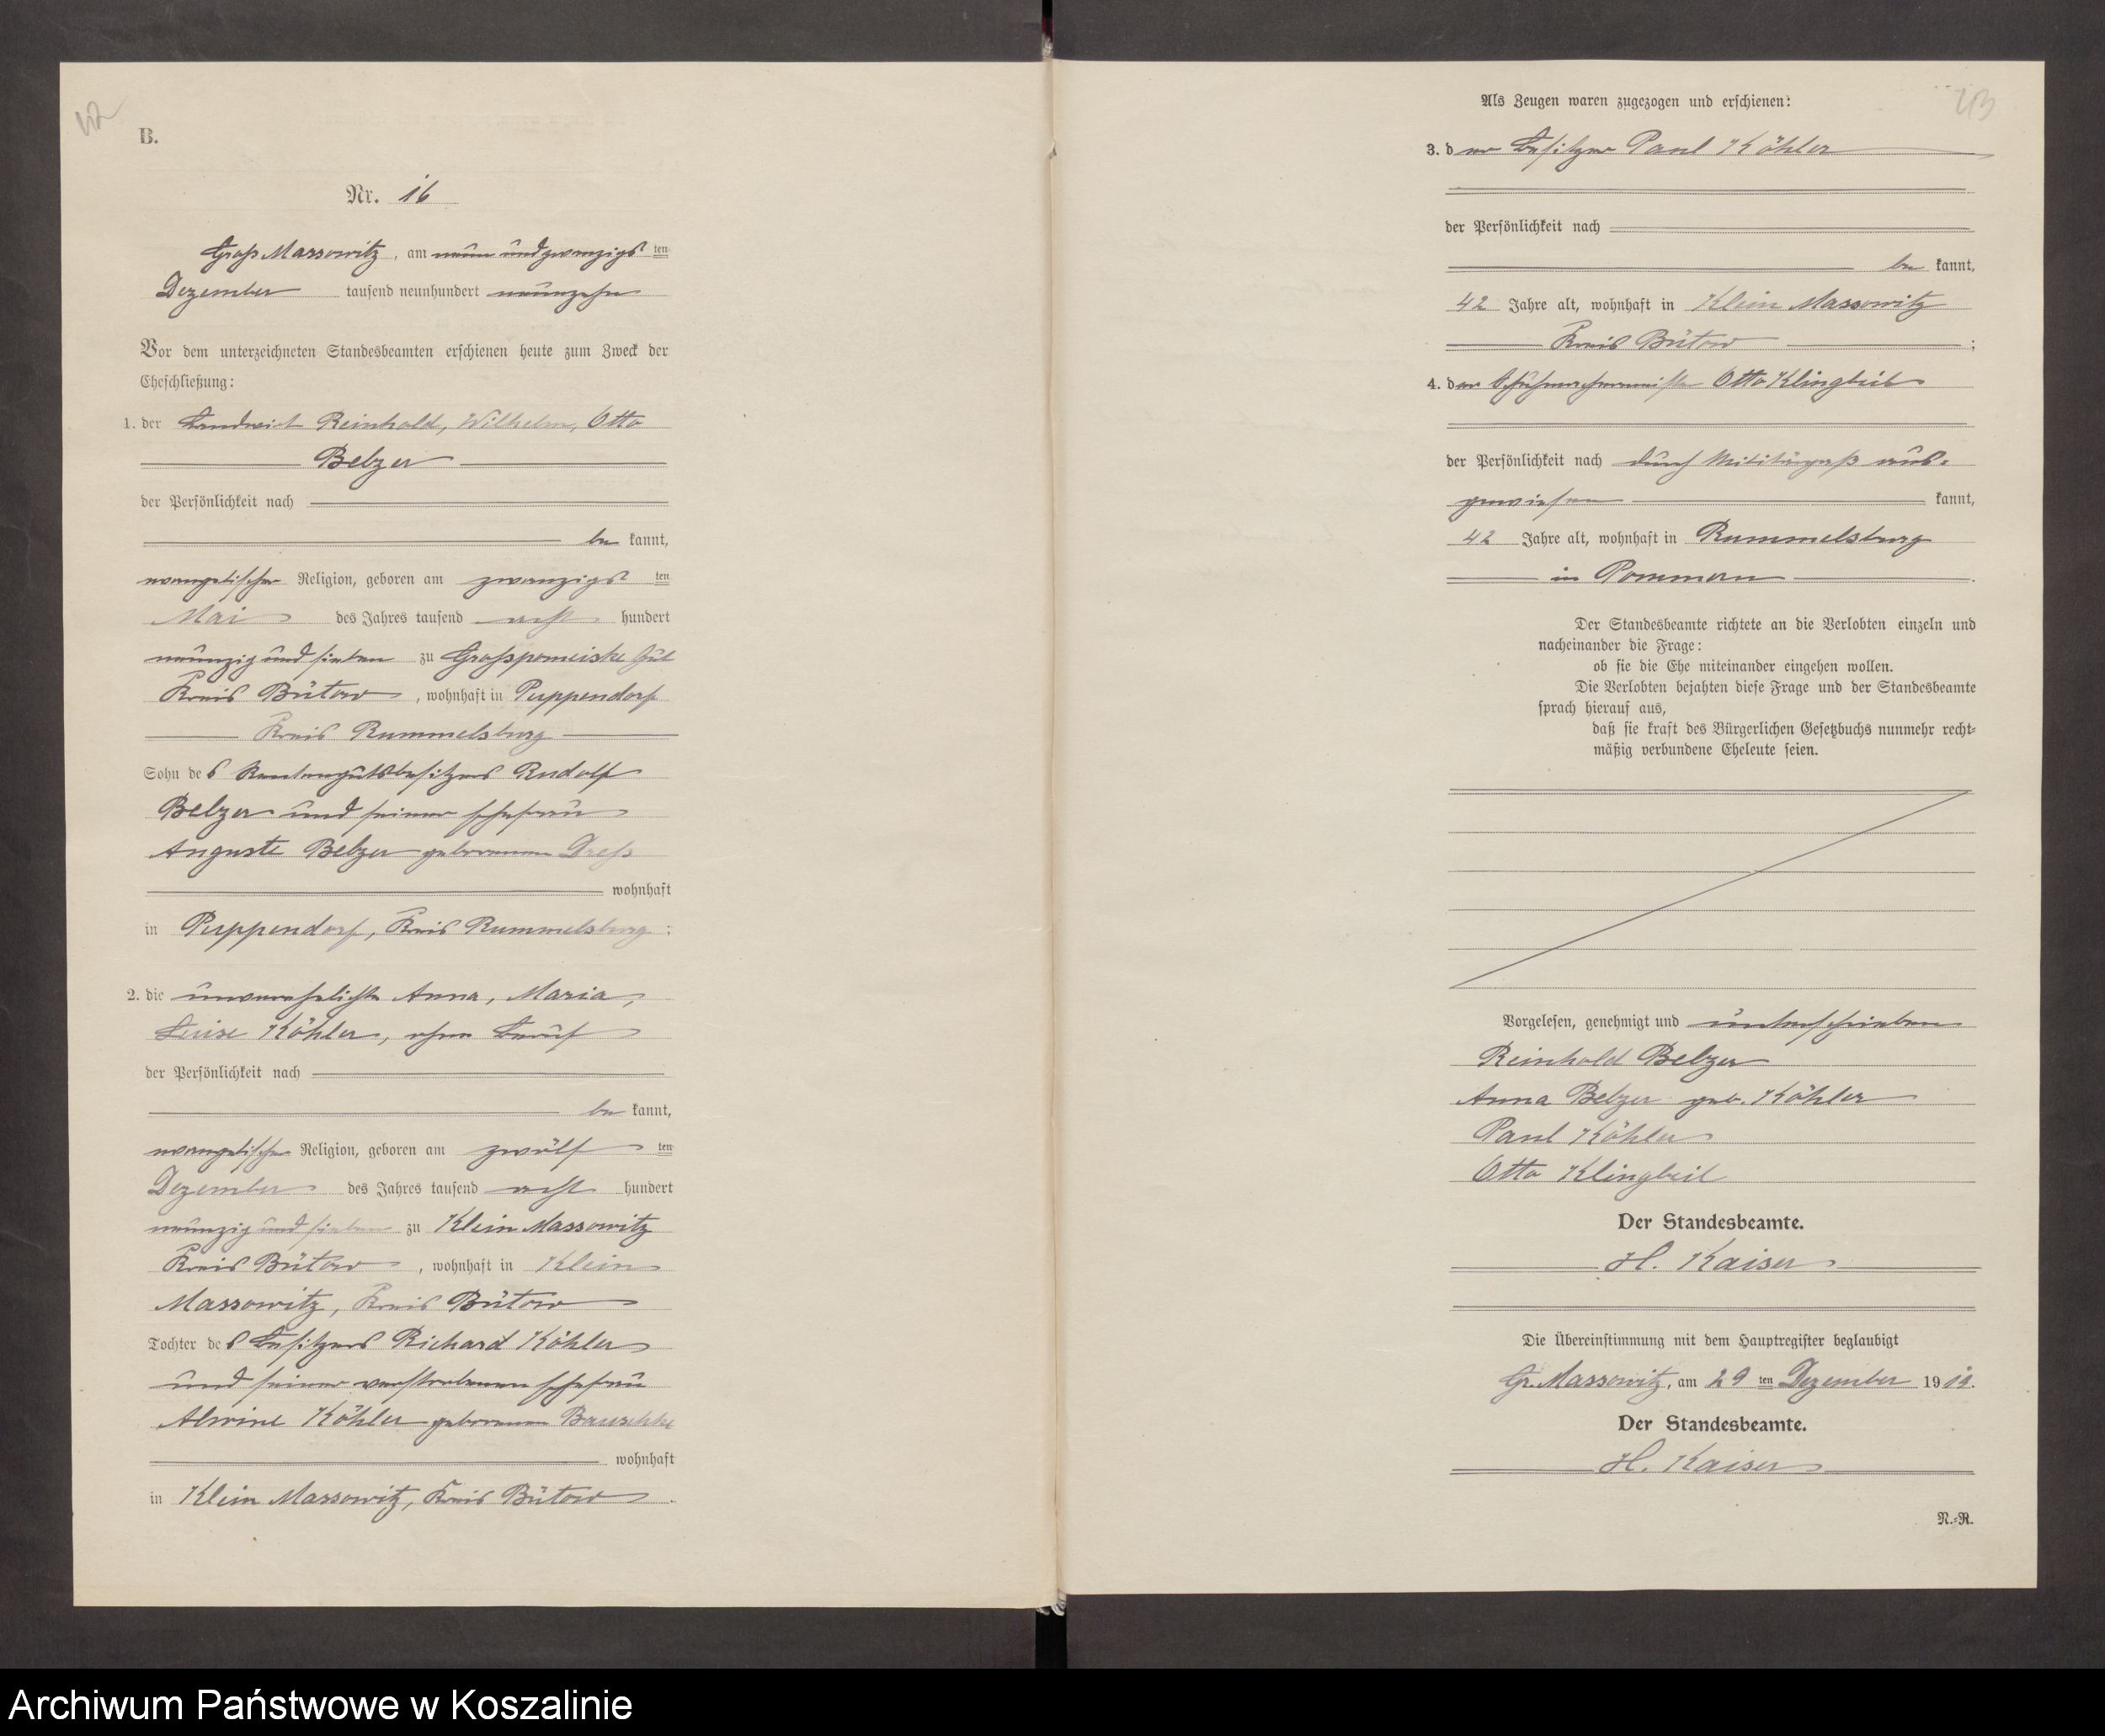 42
B.
Nr. 16
Groß Massowitz, am neun und zwanzigsten
Dezember tausend neunhundert neunzehn
Vor dem unterzeichneten Standesbeamten erschienen heute zum Zweck der
Eheschließung:
1. der Landwirt Reinhold, Wilhelm, Otto
Belzer
der Persönlichkeit nach
be kannt,
evangelischer Religion, geboren am zwanzigsten
Mai des Jahres tausend acht hundert
neunzig und sieben zu Großpomeiske Gut
Kreis Bütow, wohnhaft in Puppendorf
Kreis Rummelsburg
Sohn des Rentengutsbesitzers Rudolf
Belzer und seiner Ehefrau
Auguste Belzer geborenen Dreß
wohnhaft
in Puppendorf, Kreis Rummelsburg;
2. die unverehelichte Anna, Maria,
Luise Köhler, ohne Beruf
der Persönlichkeit nach
be kannt,
evangelischer Religion, geboren am zwölften
Dezember des Jahres tausend acht hundert
neunzig und sieben zu Klein Massowitz
Kreis Bütow, wohnhaft in Klein
Massowitz, Kreis Bütow
Tochter des Besitzers Richard Köhler
und seiner verstorbenen Ehefrau
Alwine Köhler geborenen Bauschke
wohnhaft
in Klein Massowitz, Kreis Bütow.
43
Als Zeugen waren zugezogen und erschienen:
3. der Besitzer Paul Köhler
der Persönlichkeit nach
be kannt,
42 Jahre alt, wohnhaft in Klein Massowitz
Kreis Bütow;
4. der Otto Klingbeil
der Persönlichkeit nach durch Militärpaß aus-
gewiesen kannt,
42 Jahre alt, wohnhaft in Rummelsburg
in Pommern.
Der Standesbeamte richtete an die Verlobten einzeln und
nacheinander die Frage:
ob sie die Ehe miteinander eingehen wollen.
Die Verlobten bejahten diese Frage und der Standesbeamte
sprach hierauf aus,
daß sie kraft des Bürgerlichen Gesetzbuchs nunmehr recht-
mäßig verbundene Eheleute seien.
Vorgelesen, genehmigt und unterschrieben
Reinhold Belzer
Anna Belzer geb. Köhler
Paul Köhler
Otto Klingbeil
Der Standesbeamte.
H. Kaiser
Die Übereinstimmung mit dem Hauptregister beglaubigt
Gr. Massowitz, am 29 ten Dezember 1919.
Der Standesbeamte.
H. Kaiser
N.-R.
Archiwum Państwowe w Koszalinie